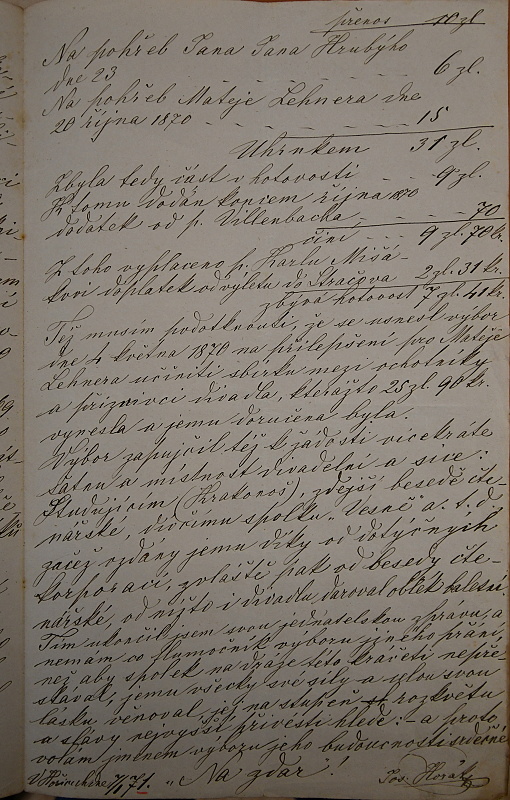 přenos 10 zl
Na pohřeb Jana Jana Hrubýho
dne 23 6 zl.
Na pohřeb Mateje Lehnera dne
20 října 1870 15
Uhrnkem 31 zl.
Zbyla tedy část v hotovosti 9 zl.
K tomu dodán koncem října 1870
dodatek od p. Villenbacka 70
činí 9 zl. 70 kr.
Z toho vyplaceno p. Karlu Mišá-
kovi doplatek od výletu do Stračova 2 zl. 31 kr.
zbývá hotovost 7 zl. 41 kr.
Též musím podotknouti, že se usnesl výbor
dne 4 května 1870 na přilepšení pro Matěje
Lehnera učiniti sbírku mezi ochotníky
a příznivci divadla, kterážto 25 zl. 90 kr.
vynesla a jemu doručena byla.
Výbor zapujčil též k žádosti vícekráte
šatnu a místnost divadelní a sice:
Studujícím (Krakonoš), zdejší besedě čte-
nářské, dívčímu spolku „Vesně" a. t. d.
začež vzdány jemu díky od dotýčných
korporací, zvláště pak od besedy čte-
nářské, od nížto i divadlu daroval oblek
Tím ukončil jsem svou jednatelskou zprávu, a
nemám co tlumočník výboru jiného přání,
než aby spolek na dráze této kráčeti nepře-
stával, jemu všecky své síly a celou svou
lásku věnoval, jej na stupeň rozkvětu
a slávy nejvyšší přivésti hleďě: - a proto
volám jménem výboru jeho budoucnosti srdečné
„Na zdar"!
V Hořicích dne 1/1 71. Jos. Horák